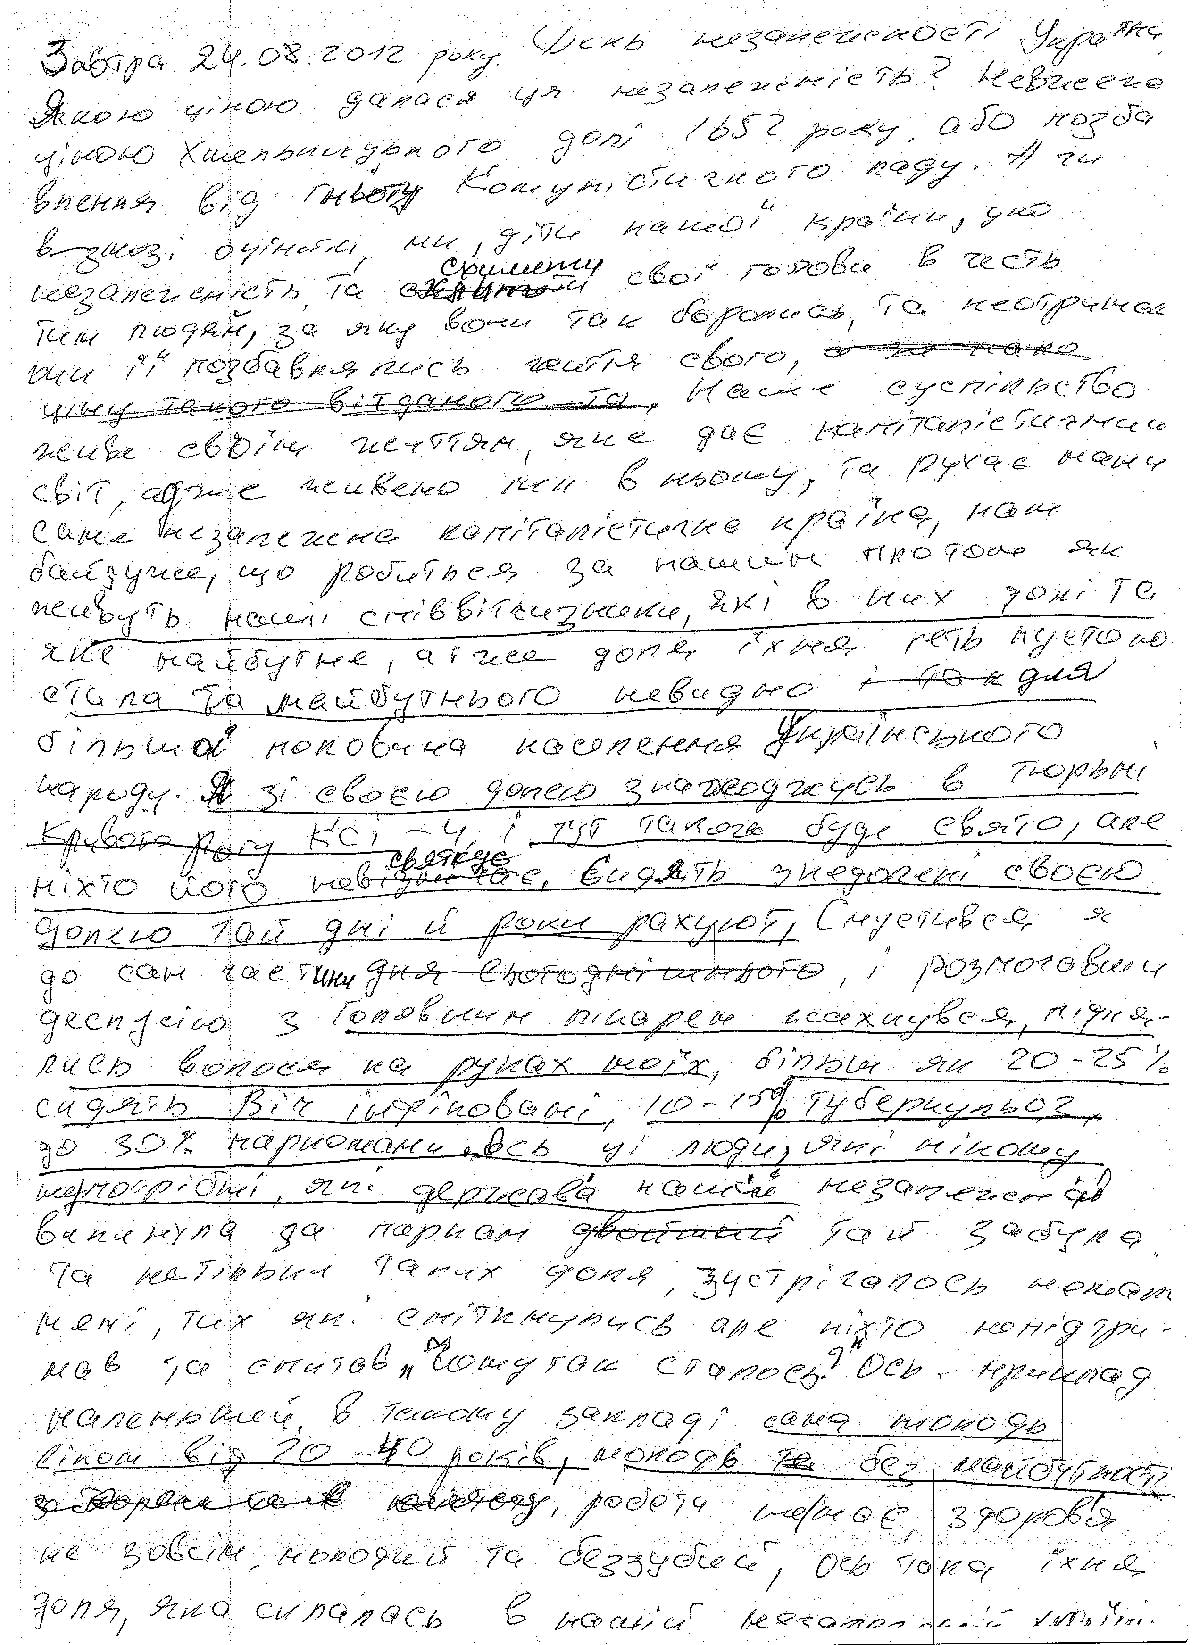 Завтра 24.08.2012 року. День незалежності України
Якою ціною далася ця незалежність? Невжеено
ціною Хмельницького долі 1652 року, або позба
влення від гньоту Комуністичного ладу. А чи
в змозі оцінити, ми, діти нашої країни, цю
незалежність, та схилити свої голови в честь
тим людям, за яку вони так боролись, та неотримав
ши її позбавлялись життя свого, а за таке
ціну такого відданого та, Наше суспільство
живе своїм життям, яке дає капіталістичний
світ, адже живемо ми в ньому, та рухає нами
саме незалежна капіталістична країна, нам
байдуже, що робиться за нашим протоне як
живуть наші співвітчизники, які в них долі та
яке майбутнє, атже доля їхня геть пустою
стала та майбутнього невидно і так для
більшої половина населення Українського
народу. Я зі своєю долею знаходжусь в тюрьмі
Кривого рогу КСІ-4, і тут також буде свято, але
ніхто його не святкує, сидять знедолені своєю
долею тай дні й роки рахуют, Спустився я
до сан частини для сьогоднішнього, і розмоговили
десплею з Головним лікарем жахнувся, підня-
лись волося на руках моїх, більш як 20-25%
сидять Віч інфіковані, 10-15% туберкульоз,
до 30% наркомани. Ось ці люди, які нікому
непотрібні, які держава нашій незалежній
викинула за паркан двойний тай забула
Та нетільки таких доля, зустрічалось нежаж
мені, тих які спіткнулись але ніхто непідтри-
мав та спитав, "Чому так сталось?" Ось приклад
маленький, в тюрмому закладі сама молодь
віком від 20-40 років, молодь та без майбутнього
, роботи немає, здоров'я
не зовсім, молодий та беззубий, ось така їхня
доля, яка склалась в нашій незалежній